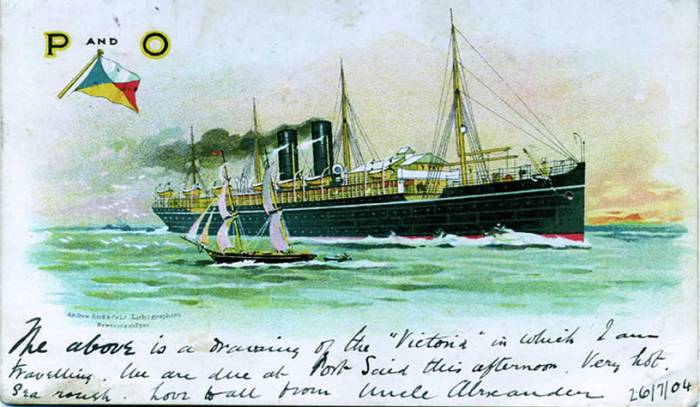 P AND O
Andrew Reid & Co Ld Lithographers
Newcastle on Tyne
The above is a drawing of the "Victoria" in which I am
travelling. We are due at Port Said this afternoon. Very hot.
Sea rough. Love to all from Uncle Alexander 26/7/04